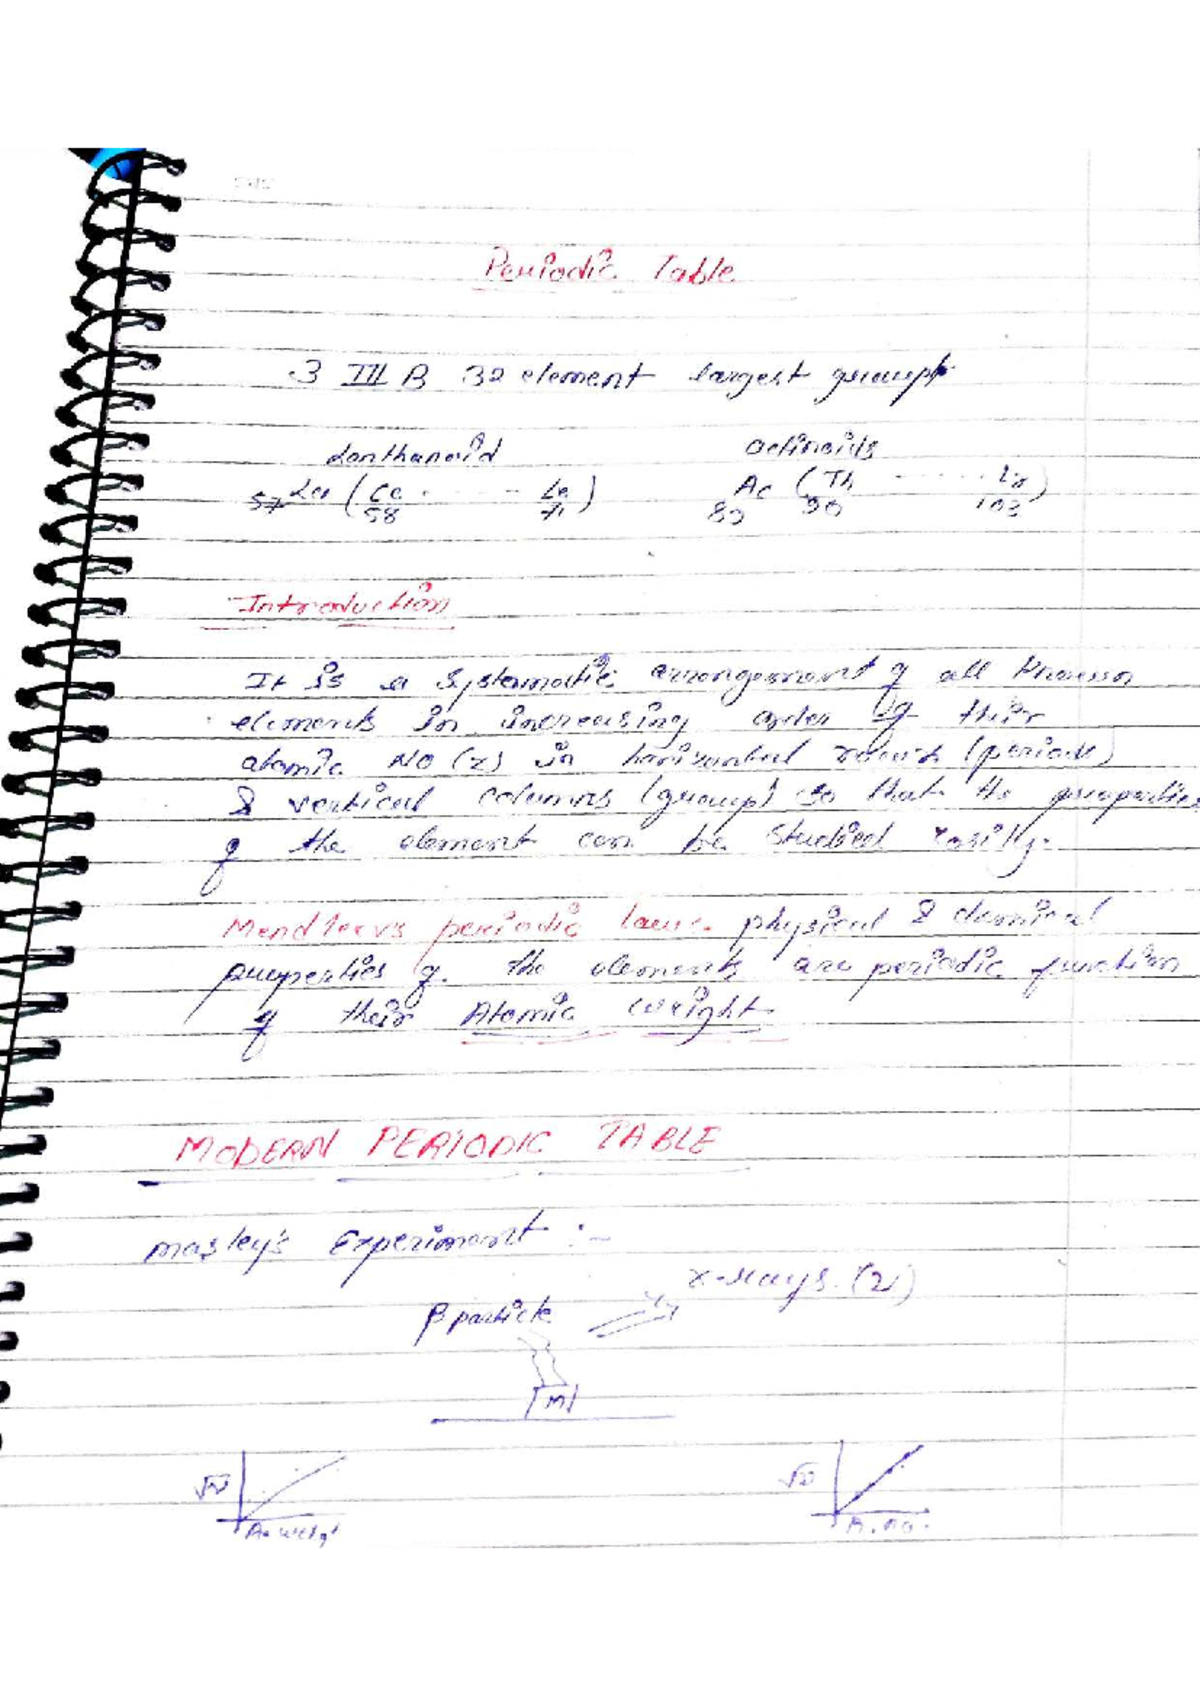 Periodic Table
3 III B 32 element largest group
Lanthanoid Actinoids
57 La ( Ce . . . . . . ) Ac ( Th . . . . . . )
58 71 89 90 103
Introduction
It is a systematic arrangement of all known
elements in increasing order of their
atomic No (z) in horizontal rows (periods)
& vertical columns (group) so that the properties
of the element can be studied easily.
Mendleevs periodic law:- physical & chemical
properties of the elements are periodic function
of their Atomic weight
MODERN PERIODIC TABLE
Mosley's Experiment :-
x-rays. (ν)
β particle
[m]
√ν √ν
A. weight A. no.